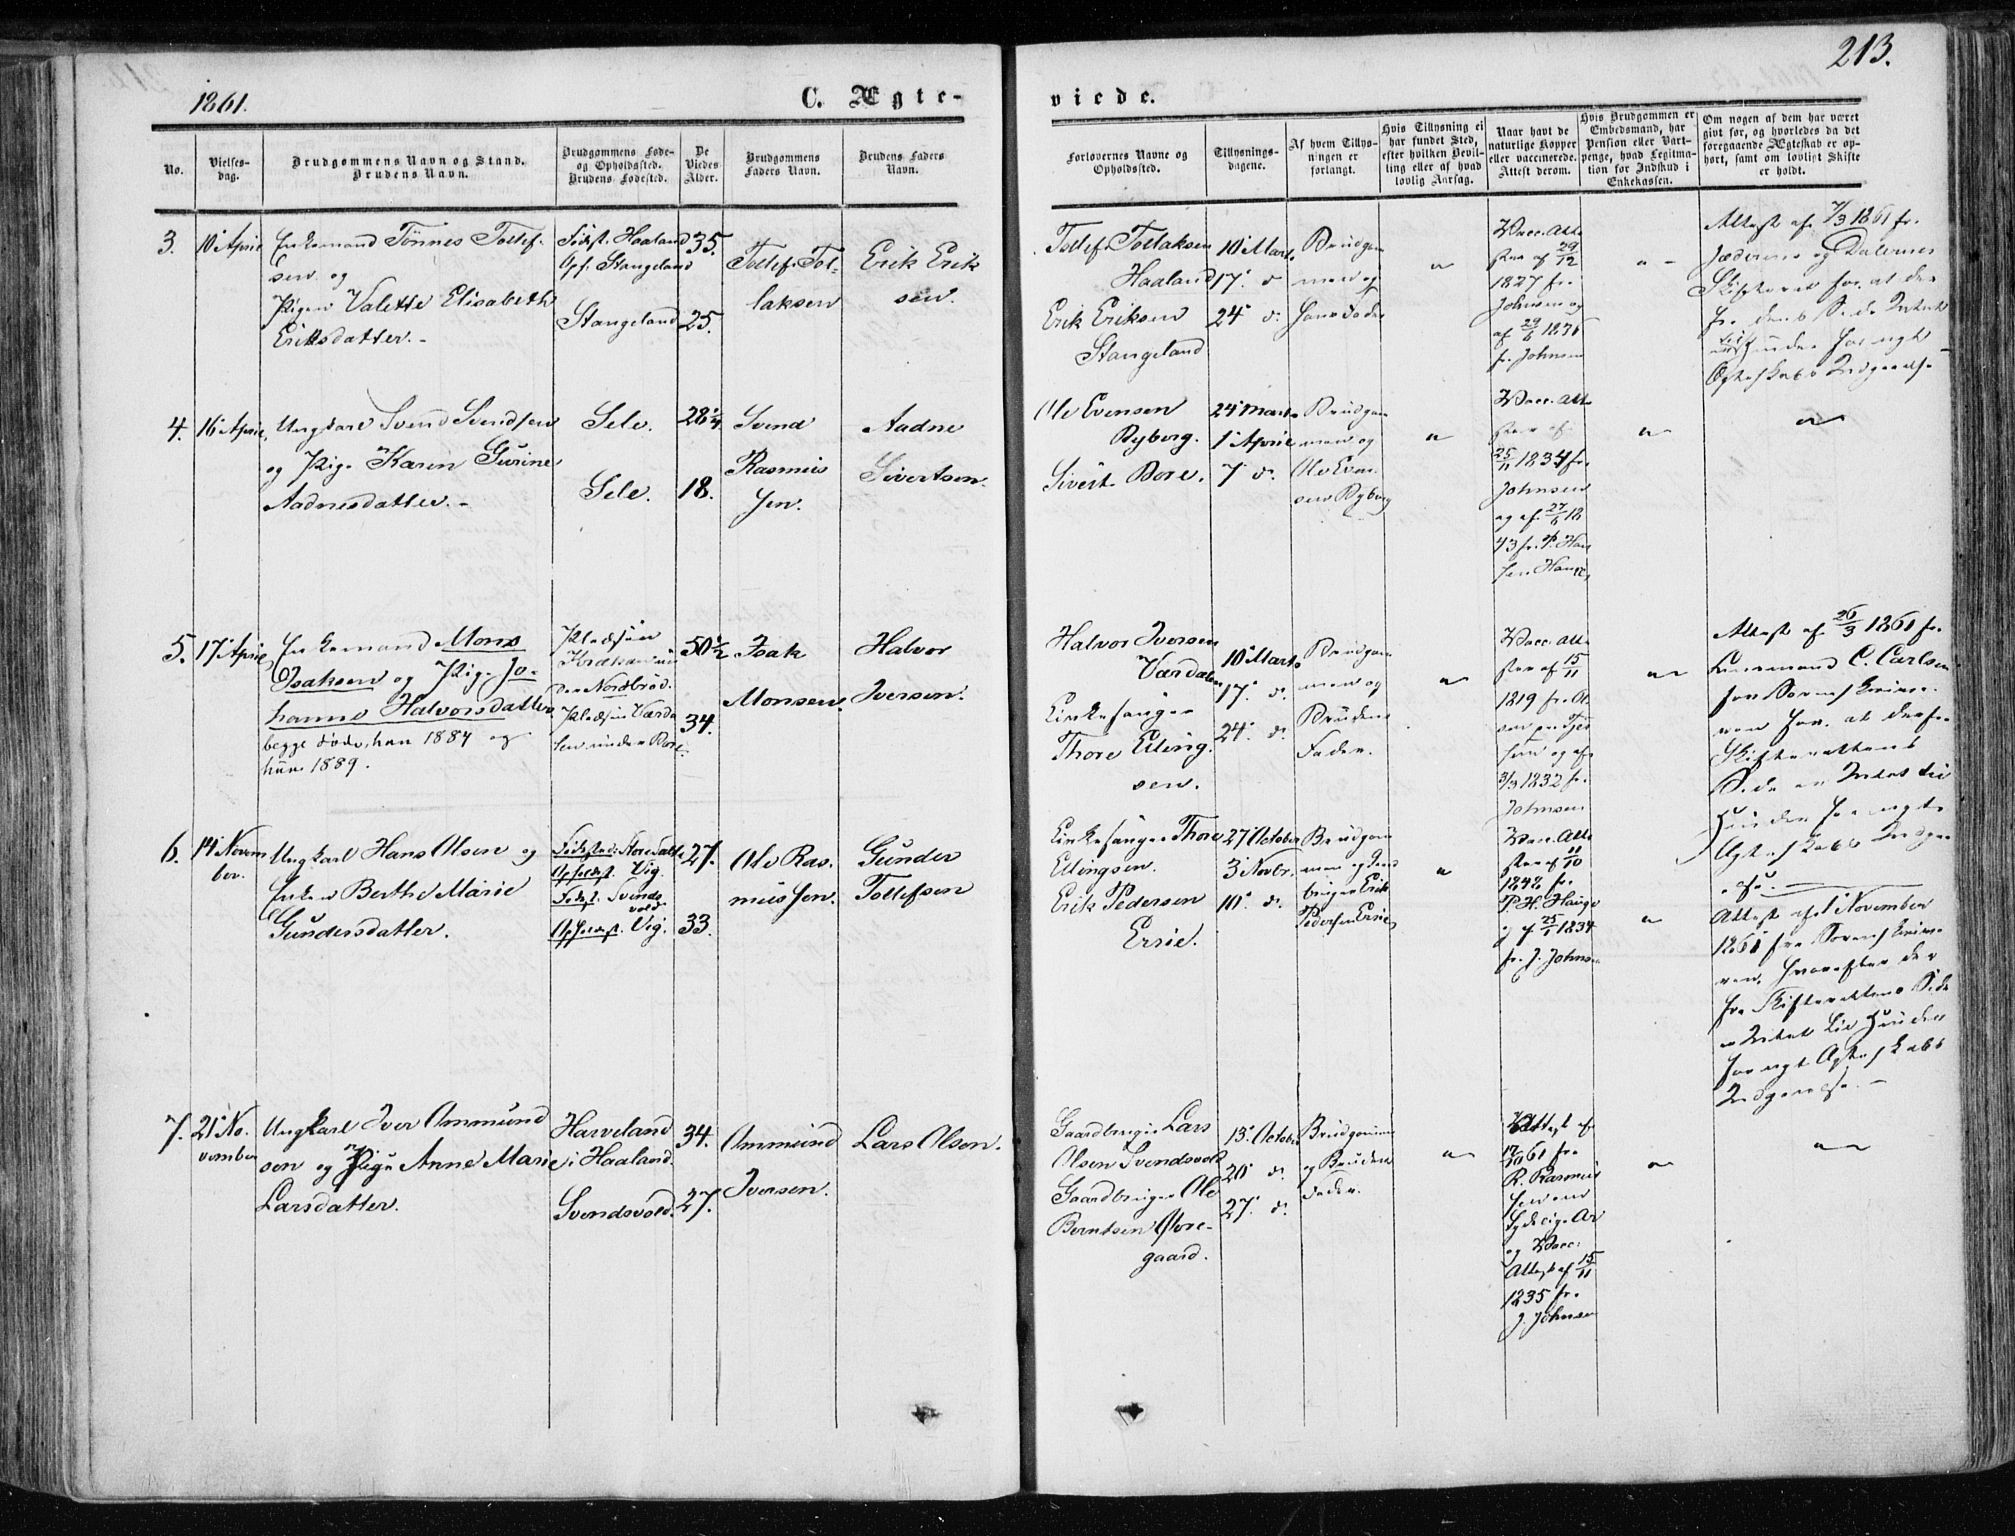 213.
1861.
C. Ægte-
viede.
No.
Vielses-
dag.
Brudgommens Navn og Stand.
Brudens Navn.
Brudgommens Føde-
og Opholdssted.
Brudens Fødested.
De
Viedes
Alder.
Brudgommens
Faders Navn.
Brudens Faders
Navn.
Forlovernes Navne og
Opholdssted.
Tillysnings-
dagene.
Af hvem Tillys-
ningen er
forlangt.
Hvis Tillysning ei
har fundet Sted,
efter hvilken Bevil-
ling eller af hvad
lovlig Aarsag.
Naar havt de
naturlige Kopper
eller vaccinerede.
Attest derom.
Hvis Brudgommen er
Embedsmand, har
Pension eller Vart-
penge, hvad Legitima-
tion for Indskud i
Enkekassen.
Om nogen af dem har været
givt før, og hvorledes da det
foregaaende Ægteskab er op-
hørt, samt om lovligt Skifte
er holdt.
3.
10' April
Enkemand Tönnes Tollef-
sen og
Pigen Valette Elisabeth
Eriksdatter.-
Födest. Haaland
Oph. Stangeland
Stangeland
35.
25.
Tollef Tol-
laksen
Erik Erik
sen.
Tollef Tollaksen
Haaland
Erik Eriksen
Stangeland
10' Marts
17' d
24' d.
Brudgom
men og
hans Fader
"
Vacc. Atte
ster af 29/12
1827 fr.
Johnsen og
af 29/6 1836
fr. Johnsen
"
Attest af 7/3 1861 fr.
Jæderens og Dalernes
Skifteret for, at der
fr. dens Side Intet
er til Hinder for nyt
Ægteskabs Indgaaelse
4.
16' April,
Ungkarl Svend Svendsen
og Pige Karen Gurine
Aadnesdatter.-
Sele.
Sele.
28 1/4.
18.
Svend
Rasmus
sen.
Aadne
Sivertsen.
Ole Evensen
Ryberg.
Sivert Bore.
24' Marts
1' April
7' d.
Brudgom
men og
Ole Even
sen Ryberg
"
Vacc. Atte
ster af
25/11 1834 fr.
Johnsen
og af 27/6 18
43 fr. P. Han
sen Hauge
"
"
5.
17' April
Enkemand Mons
Isaksen og Pige Jo-
hanne Halvorsdatter
begge döde, han 1884 og
hun 1889.
Pladsen
un
der Nordbröd.
PladsenVærda
len under Bore.
50 1/2
34.
Isak
Monsen.
Halvor
Iversen.
Halvor Iversen
Værdalen
Kirkesanger
Thore Elling-
sen.
10' Marts
17' d.
24' d.
Brudgom
men og
Brudens
Fader.
"
Vacc. Atte
ster af 15/11
1819 fr.
og af
3/3 1832 fr.
Johnsen
"
Attest af 26/3 1861 fr.
Lensmand C. Carlsen
for Sorenskrive-
ren for, at der fr.
Skifterettens
Side er Intet til
Hinder for nyt
Ægteskabs Indgaa
else.
6.
14' Novem
ber.
Ungkarl Hans Olsen og
Enken Berthe Marie
Gundersdatter.
Födested:
Opholdst. Vig.
Födest. Svends
vold.
Opholdst. Vig.
27.
33.
Ole Ras-
mussen.
Gunder
Tollefsen
Kirkesanger Thore
Ellingsen.
Erik Pedersen
Ersie.
27' October
3' Novbr.
10' d.
Brudgom
men og Gaard
bruger Erik
Pedersen Ersie,
"
Vacc. Atte
ster af 11/10
1842 fr.
P. H. Hauge
og af 25/1 1834
fr. J. Johnsen
"
Attest af 1' November
1861 fra Sorenskrive-
ren, hvorefter der
fra Skifterettens Side
er Intet til Hinder
for nyt Ægteskabs
Indgaaelse.
7.
21' No-
vember
Ungkarl Iver Ommund
sen og Pige Anne Marie
Larsdatter.
Harveland
i Haaland.
Svendsvold.
34.
27.
Ommund
Iversen.
Lars Olsen.
Gaardbruger Lars
Olsen Svendsvold
Gaardbruger Ole
Berntsen Övre-
gaard.
13' October
20' d.
27' d.
Brudgommen
og Brudens
Fader.
"
Attest af
17/10 61 fr.
R. Rasmus
sen om
tydelige Ar
og Vacc.
Attest af 15/11
1835 fr.
J. Johnsen
"
"